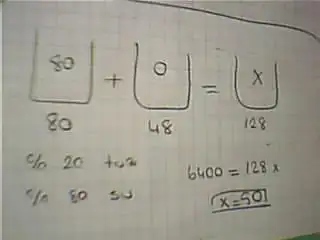 80 + 0 = x
80 48 128
% 20 tuz
% 80 su
6400 = 128 x
x = 50